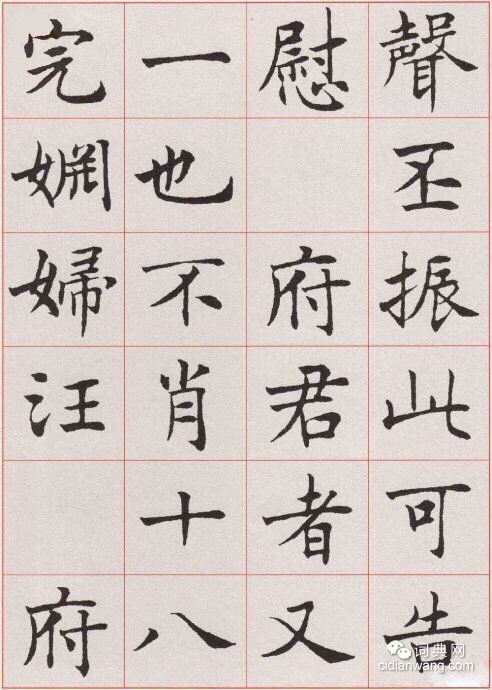 聲丕振此可告
慰 府君者又
一也不肖十八
完婣婦汪 府
词典网
cidianwang.com